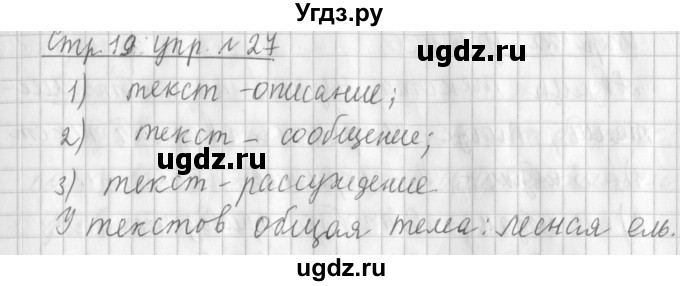 Угдз.ру
Стр. 19 упр. № 27
1) текст -описание;
2) текст - сообщение;
ugdz.ru
3) текст - рассуждение
У текстов общая тема: лесная ель.
ugdz.ru
ugdz.ru